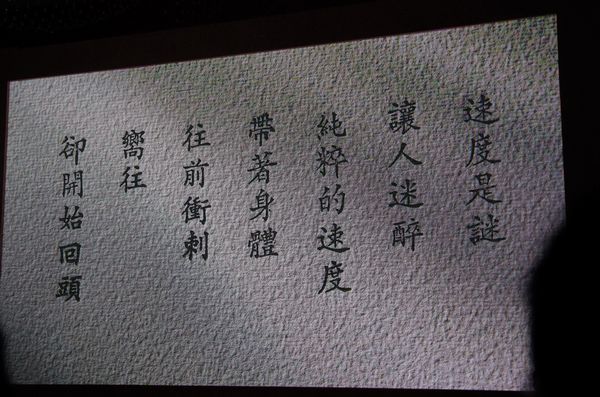 速度是謎
讓人迷醉
純粹的速度
帶著身體
往前衝刺
嚮往
卻開始回頭